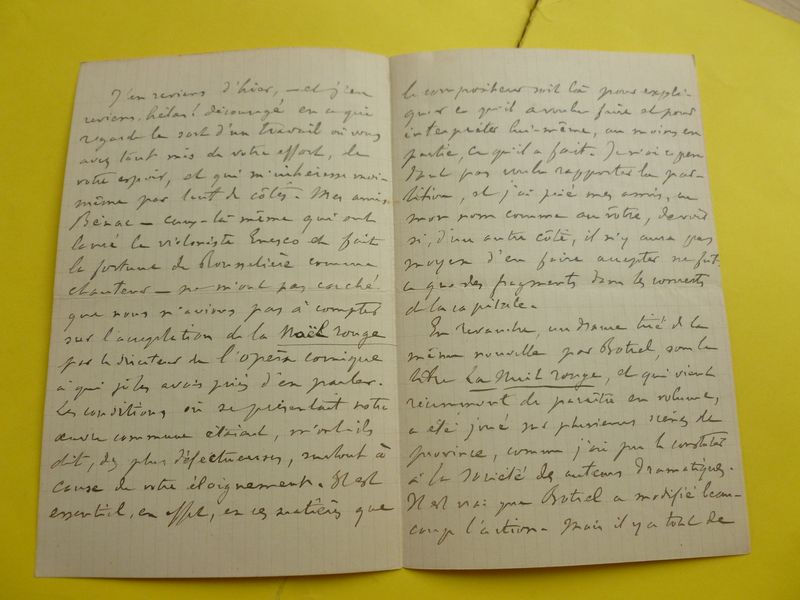 J'en reviens d'hier, — et j'en
reviens, hélas! découragé en ce qui
regarde le sort d'un travail où vous
avez tant mis de votre effort, de
votre espoir, et qui m'intéresse moi-
même par tant de côtés. Mes amis
Bénac — ceux-là même qui ont
lancé le violoniste Enesco et fait
la fortune de Rousselière comme
chanteur — ne m'ont pas caché
que nous n'avions pas à compter
sur l'acceptation de la Noël rouge
par le directeur de l'opéra comique
à qui je les avais priés d'en parler.
Les conditions où se présentait notre
œuvre commune étaient, m'ont-ils
dit, des plus défectueuses, surtout à
cause de votre éloignement. Il est
essentiel, en effet, en ces matières que
le compositeur soit là pour expli-
quer ce qu'il a voulu faire et pour
interpréter lui-même, au moins en
partie, ce qu'il a fait. Je n'ai cepen
dant pas voulu rapporter la par-
tition, et j'ai prié mes amis, en
mon nom comme au vôtre, de voir
si, d'un autre côté, il n'y aura pas
moyen d'en faire accepter ne fut-
ce que des fragments dans les concerts
de la capitale.
En revanche, un drame tiré de la
même nouvelle par Botrel, sous le
titre La Nuit rouge, et qui vient
récemment de paraître en volume,
a été joué sur plusieurs scènes de
province, comme j'ai pu le constater
à la Société des auteurs dramatiques.
Il est vrai que Botrel a modifié beau-
coup l'action. Mais il y a tout de